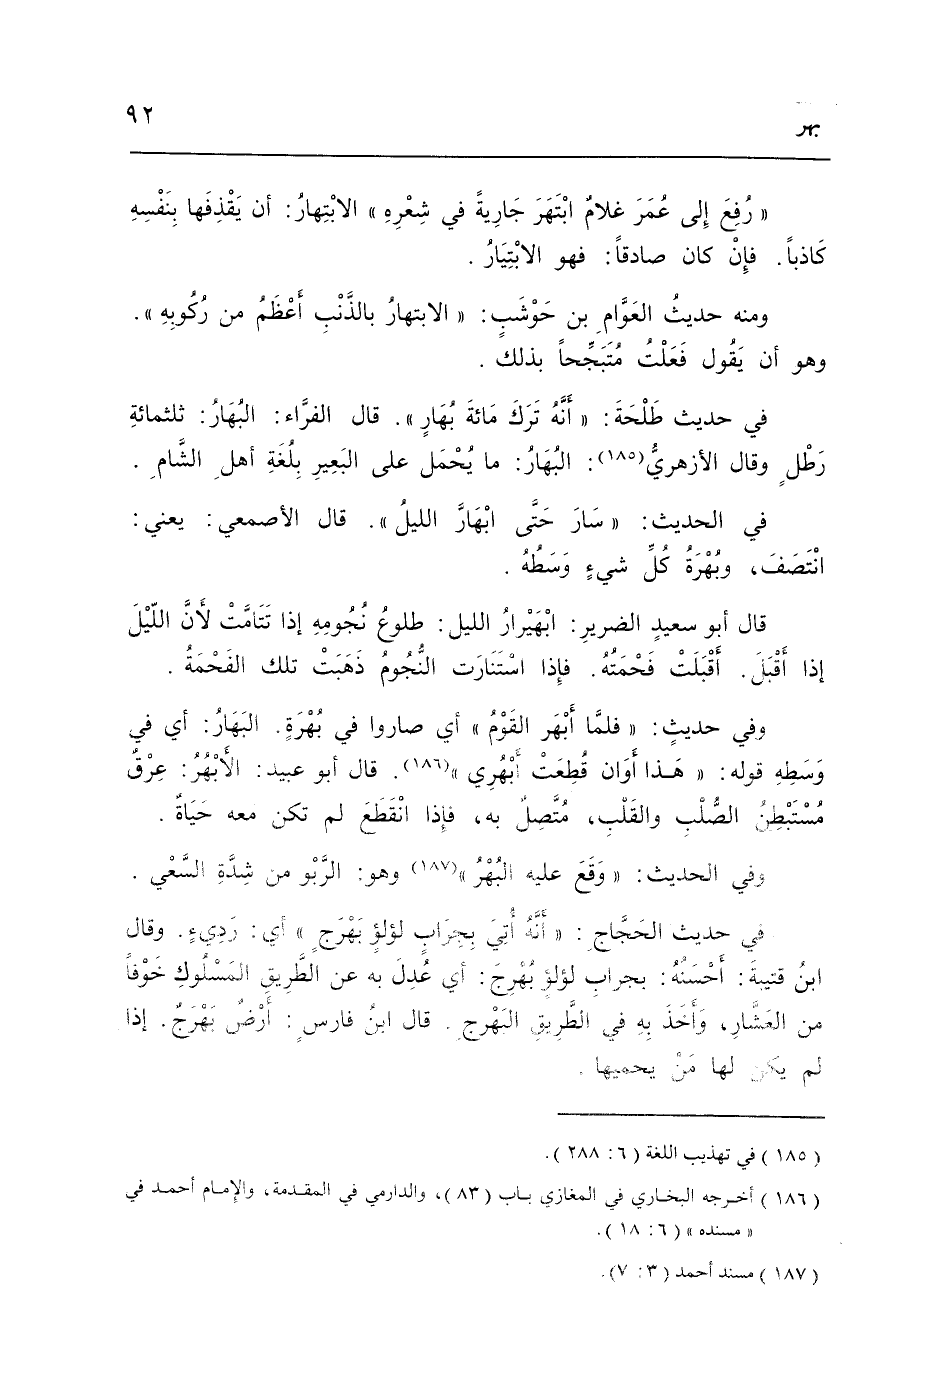 بهر
٩٢
« رُفِعَ إِلى عُمَرَ غلامُ ابْتَهَرَ جَارِيةً في شِعْرِهِ » الابْتِهارُ: أن يَقْذِفَها بِنَفْسِهِ
كَاذباً. فإِنْ كان صادقاً: فهو الابْتِيَارُ .
ومنه حديثُ العَوَّامِ بن حَوْشَبٍ: « الابتهارُ بالذَّنْبِ أَعْظَمُ من رُكُوبِهِ ».
وهو أن يَقُول فَعَلْتُ مُتَبَجِّحاً بذلك .
في حديث طَلْحَةَ: « أَنَّهُ تَرَكَ مَائةَ بُهَارٍ ». قال الفَرَّاء: البُهَارُ: ثلثمائةِ
رَطْلٍ وقال الأزهريُّ(١٨٥): البُهَارُ: ما يُحْمَل على البَعِيرِ بِلُغَةِ أهلِ الشَّامِ .
في الحديث: « سَارَ حَتَّى ابْهَارَّ الليلُ ». قال الأصمعي: يعني:
انْتَصَفَ، وبُهْرَةُ كُلِّ شيءٍ وَسَطُهُ .
قال أبو سعيدٍ الضريرِ: ابْهَيْرارُ الليل: طلوعُ نُجُومِهِ إذا تَتَامَّتْ لأَنَّ اللّيْلَ
إذا أَقْبَلَ. أَقْبَلَتْ فَحْمَتُهُ. فإِذا اسْتَنَارَت النُّجُومُ ذَهَبَتْ تلك الفَحْمَةُ .
وفي حديثٍ: « فلمَّا أَبْهَر القَوْمُ » أي صاروا في بُهْرَةٍ. البَهَارُ: أي في
وَسَطِهِ قوله: « هَـذا أَوَان قُطِعَتْ أَبْهُرِي »(١٨٦). قال أبو عبيد: الأَبْهُرُ: عِرْقٌ
مُسْتَبْطِنُ الصُّلْبِ والقَلْبِ، مُتَّصِلٌ به، فإِذا انْقَطَعَ لم تكن معه حَيَاةٌ .
وفي الحديث: « وَقَعَ عليه البُهْرُ »(١٨٧) وهو: الرَّبْو من شِدَّةِ السَّعْي .
في حديث الحَجَّاجِ: « أَنَّهُ أُتِيَ بِجِرَابٍ لؤلؤٍ بَهْرَجٍ » أي: رَدِيءٍ. وقال
ابنُ قتيبةَ: أَحْسَنُهُ: بجرابِ لؤلؤٍ بُهْرِجَ: أي عُدِلَ به عن الطَّرِيقِ المَسْلُوكِ خَوْفاً
من العَشَّارِ، وَأَخَذَ بِهِ في الطَّرِيقِ البَهْرجِ. قال ابنُ فارس: أَرْضٌ بَهْرَجٌ. إذا
لم يكن لها مَنْ يحميها .
( ١٨٥ ) في تهذيب اللغة ( ٦: ٢٨٨ ).
( ١٨٦ ) أخـرجه البخـاري في المغازي بـاب ( ٨٣ )، والدارمي في المقدمة، والإمام أحمـد في
« مسنده » ( ٦: ١٨ ).
( ١٨٧ ) مسند أحمد ( ٣: ٧).